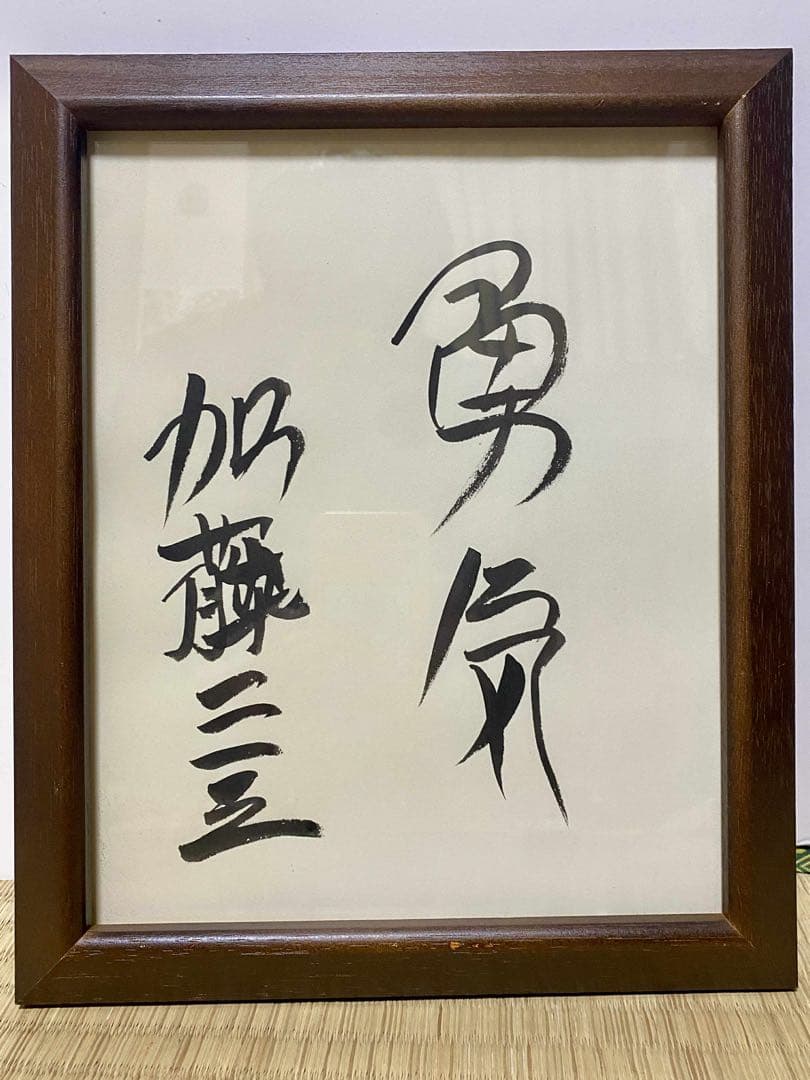 勇気
加藤一二三